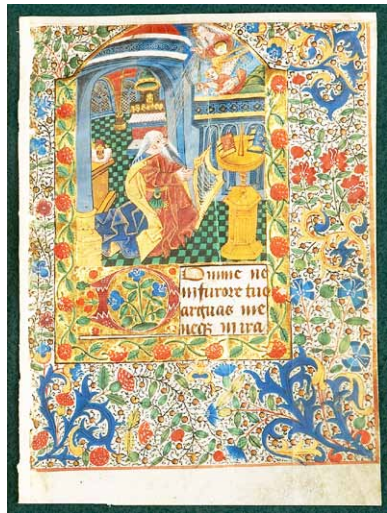 Domine ne
in furore tuo
arguas me
neqz in ira